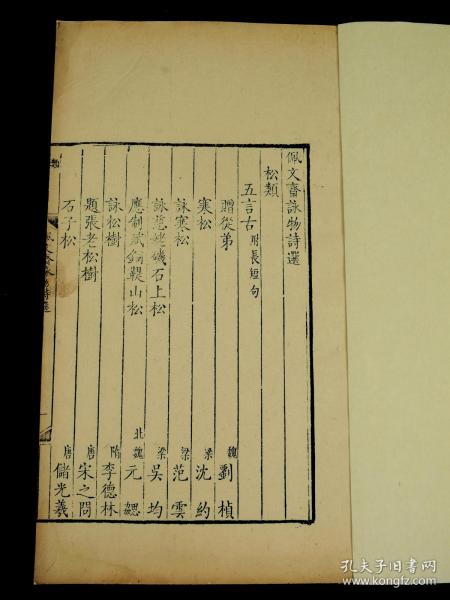 佩文齋詠物詩選
松類
五言古附長短句
贈從弟 魏劉楨
寒松 梁沈約
詠寒松 梁范雲
詠慈姥磯石上松 梁吳均
應制賦銅鞮山松 北魏元勰
詠松樹 隋李德林
題張老松樹 唐宋之問
石子松 唐儲光羲
類
文齋詠物詩選
孔夫子旧书网
www.kongfz.com